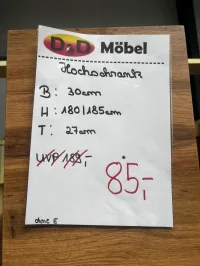 D&D Möbel
Hochschrank
B: 30cm
H: 180/185cm
T: 27cm
UVP 188,-
85,-
ohne E